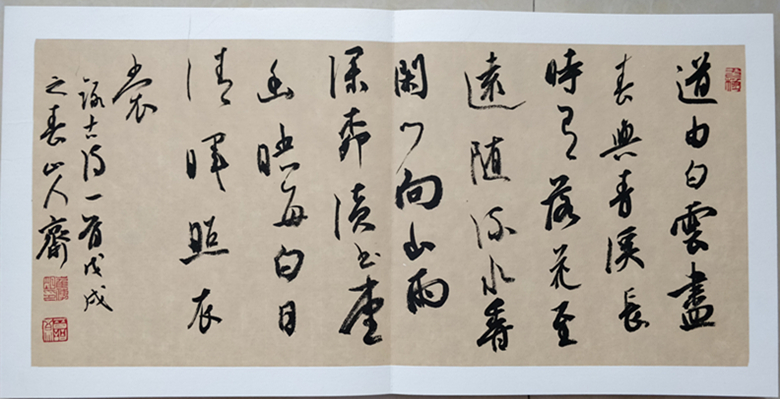 道由白雲盡
春與青溪長
時有落花至
遠随流水香
閑門向山雨
深柳讀書堂
幽映每白日
清暉照衣
裳
錄古詩一首戊戌
之春山人齋